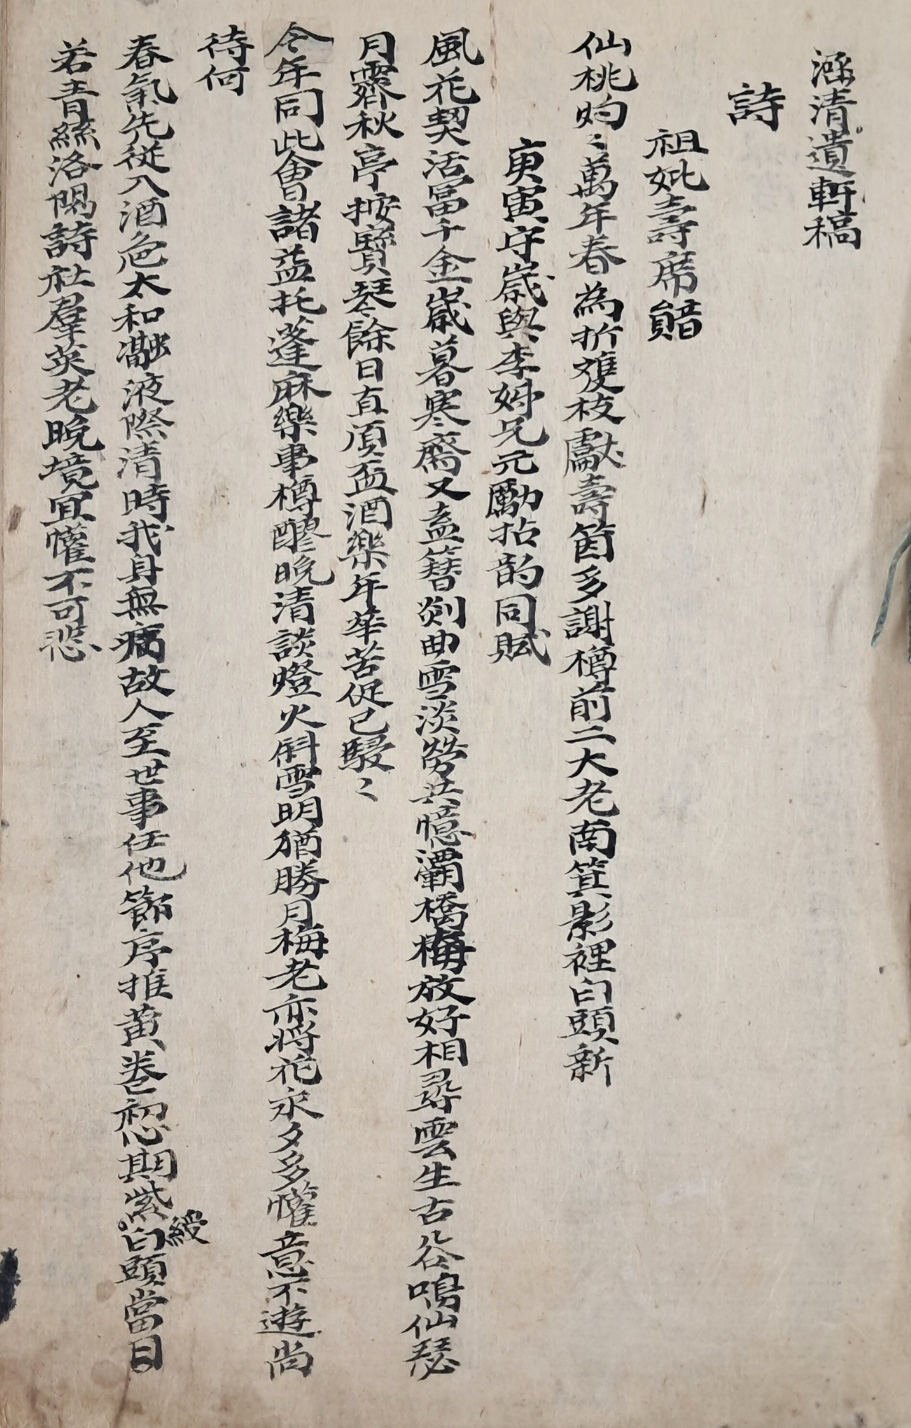 滁清遺軒稿
詩
祖妣壽席韻
仙桃灼〻萬年春為折雙枝獻壽筵多謝樽前二大老南箕影裡白頭新
庚寅守歲與李姉兄元勵拈韵同賦
風花契活富千金歲暮寒齋又盍簪剡曲雪淡勞共憶灞橋梅放好相尋雲生古谷鳴仙瑟
月霽秋亭按寶琴餘日直須盃酒樂年華苦促已駸〻
今年同此會諸益托蓬麻樂事樽醪晚清談燈火斜雪明猶勝月梅老亦將花永夕多懽意不遊尚
待何
春氣先從入酒危太和瀜液際清時我身無病故人至世事任他節序推黃卷初心期紫綬白頭當日
若青絲洛閩詩社羣英老晚境宜懽不可悲